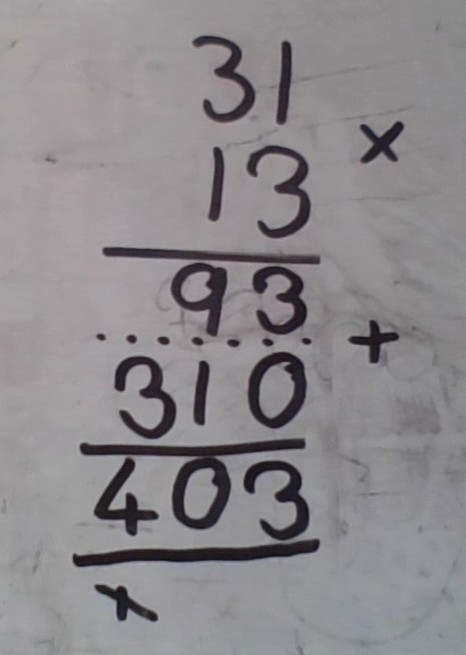 31
13 ×
93
310 +
403
1